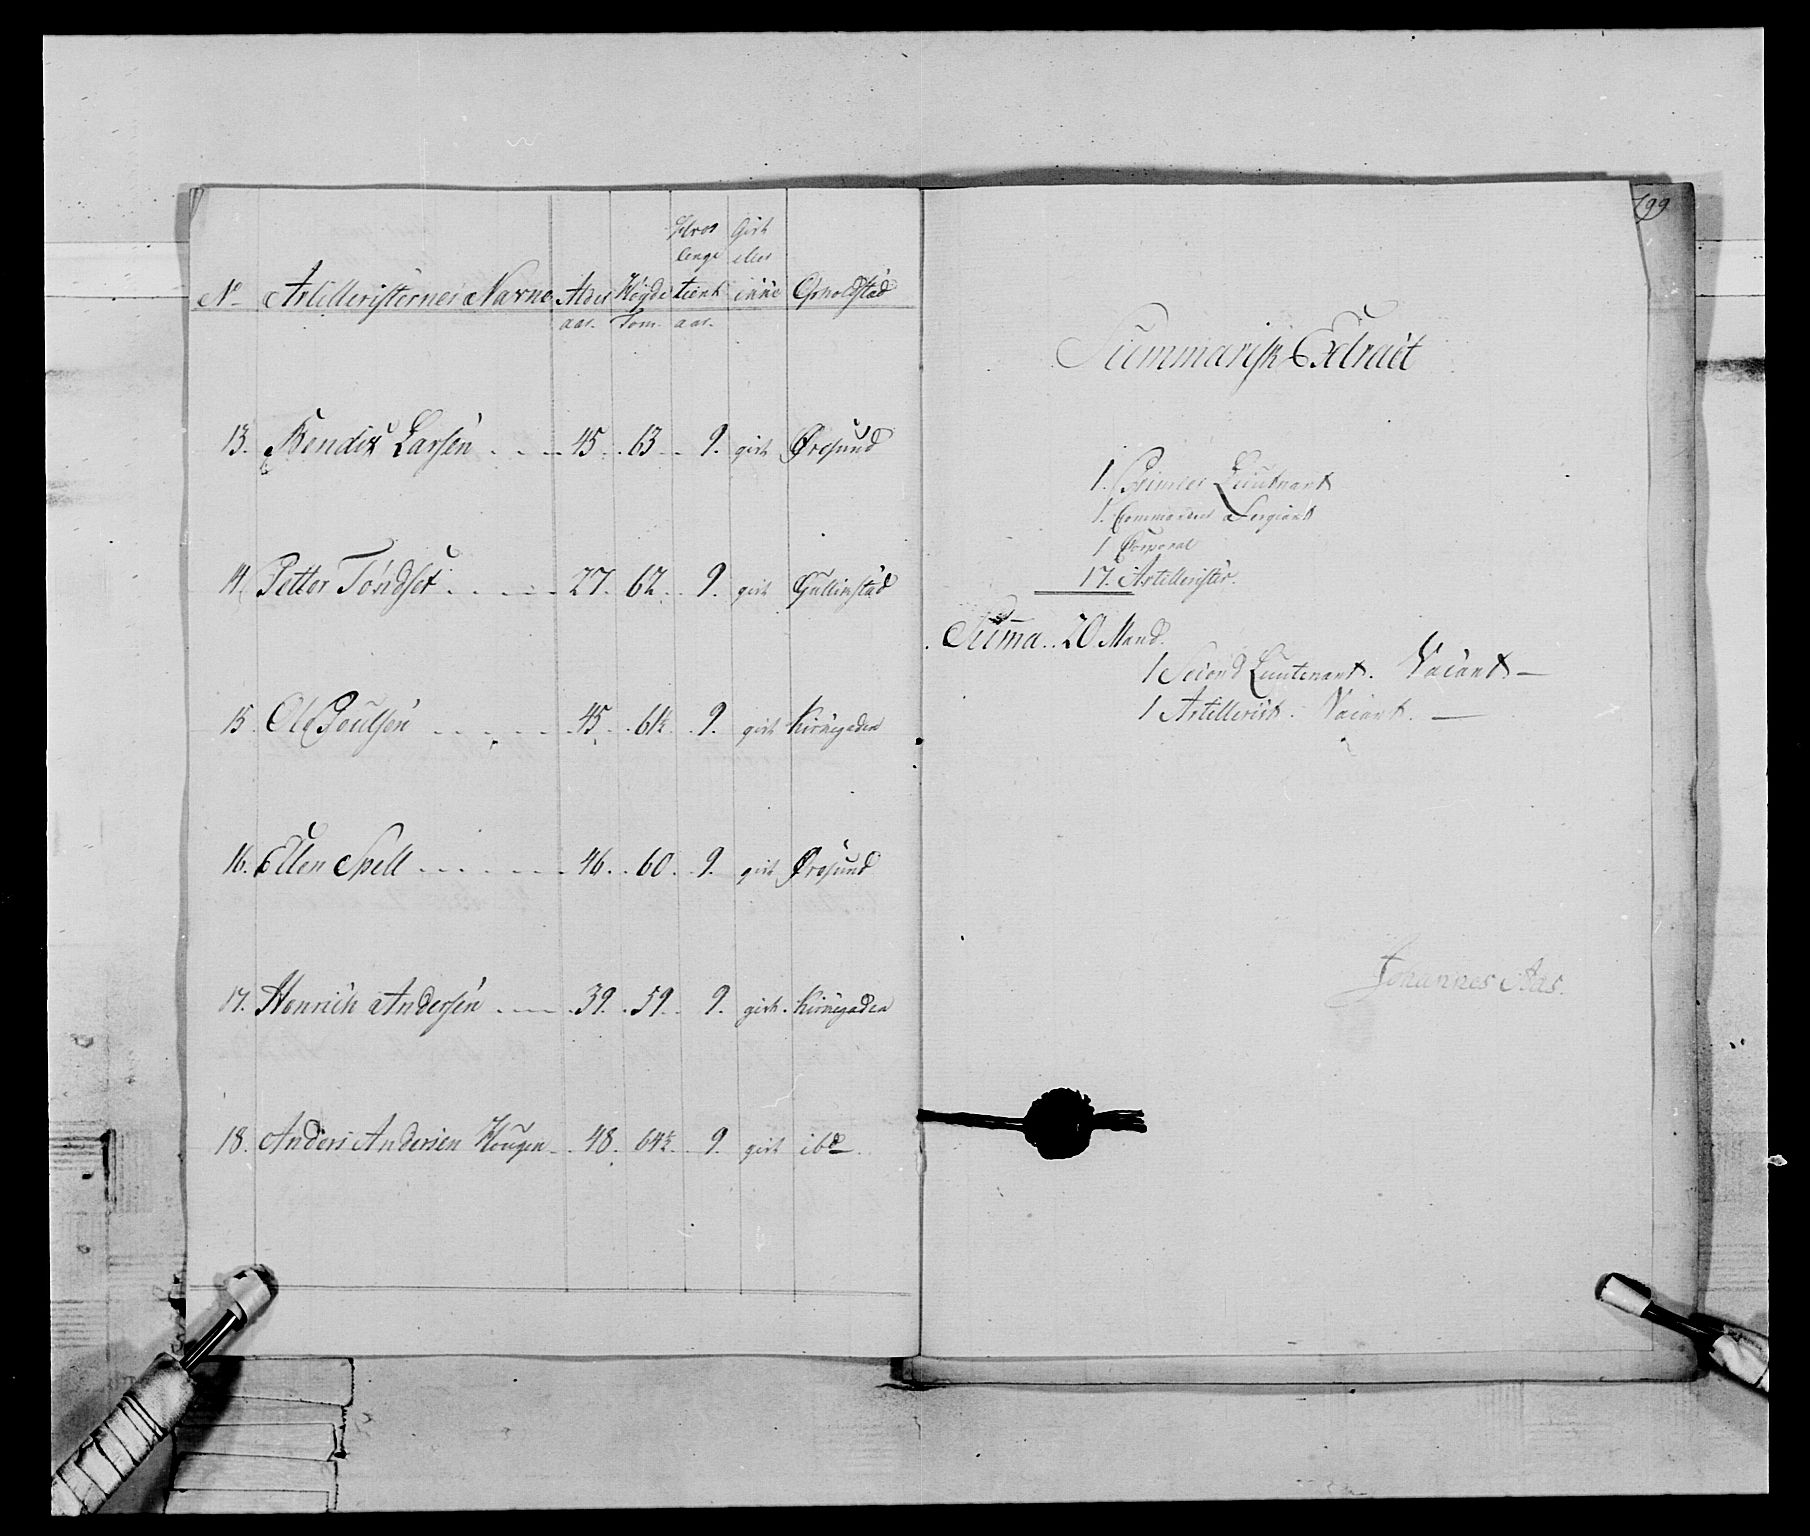 Hvor Gift
lenge eller
No Artilleristernes Navne Alder Høyde tient ikke Opholdstæd
aar. Tom. aar.
13. Bendix Larsen 45. 63. 9. gift Øresund
14. Petter Tøndset 27. 62. 9. gift Gullinstæd
15. Ole Poulsen 45. 61½ 9. gift Kirkegaden
16. Ellen Spell 46. 60. 9. gift Øresund
17. Henrich Andersen 39. 59. 9. gift. Kirkegaden
18. Anders Andersen Hougen 48. 64½ 9. gift ibd.
199
Summarisk Extract
1. Premier Lieutnant
1. Commandeer Sergiant
1 Corporal
17. Artillerister.
Summa.. 20 Mand.
1 Second Lieutenant. Vacant
1 Artillerist. Vacant.
Johannes Aas.